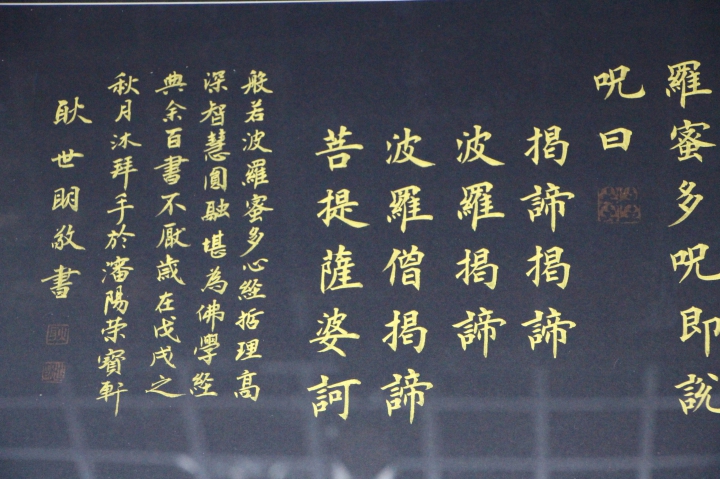 羅蜜多呪即說
呪曰
揭諦揭諦
波羅揭諦
波羅僧揭諦
菩提薩婆訶
般若波羅蜜多心經哲理高
深智慧圓融堪為佛學經
典余百書不厭歲在戊戌之
秋月沐拜手於瀋陽荣寶軒
耿世明敬書